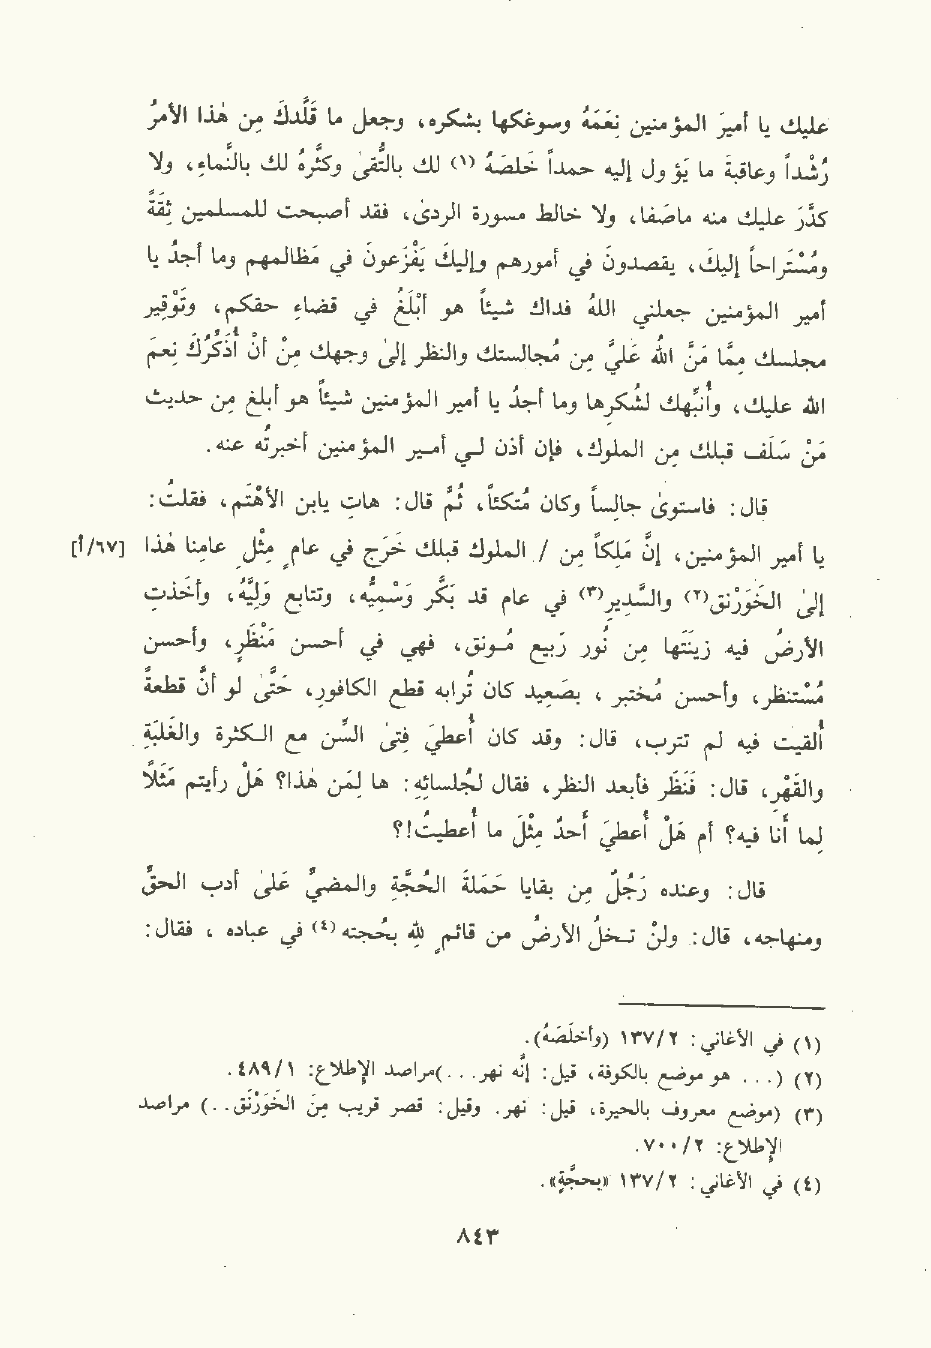 عليك يا أميرَ المؤمنين نِعَمَهُ وسوغكها بشكره، وجعل ما قَلَّدكَ مِن هٰذا الأمرُ
رُشْداً وعاقبةَ ما يُؤ ول إليه حمداً خلصَهُ (١) لك بالتُقىٰ وكثَّرهُ لك بالنَّماء، ولا
كدَّرَ عليك منه ماصَفا، ولا خالط سرورة الردىٰ، فقد أصبحت للمسلمين ثِقَةً
ومُسْتَراحاً إليك، يقصدونَ في أمورهم وإليكَ يَفْزَعونَ في مَظالمهم وما أجدُ يا
أمير المؤمنين جعلني اللهُ فداك شيئاً هو أبْلَغُ في قضاء حقكم، وتَوْقِير
مجلسك ممَّا مَنَّ اللهُ عليَّ مِن مُجالستك والنظر إلىٰ وجهك مِنْ أنْ أُذَكِّرُكَ نِعمَ
الله عليك، وأُنَبِّهك لشُكرِها وما أجدُ يا أمير المؤمنين شيئاً هو أبلغ من حديث
مَنْ سَلَف قبلك مِن الملوك، فإن أذن لـي أمـير المؤمنين أخبرتُه عنه.
قال: فاستوىٰ جالِساً وكان مُتكئاً، ثُمَّ قال: هات يابن الأهْتَم، فقلتُ:
يا أمير المؤمنين، إنَّ مَلِكاً مِن / الملوك قبلك خَرَج في عامٍ مِثْلِ عامِنا هٰذا [٦٧/أ]
إلىٰ الخَوَرْنق(٢) والسَّدِير(٣) في عام قد بَكَّر وَسْمِيُّه، وتتابع وَلِيُّه، وأخذت
الأرضُ فيه زينَتها مِن نُور ربيع مُونق، فهي في أحسن مَنْظَرٍ، وأحسن
مُسْتنظر، وأحسن مُختبر ، بصَعيد كان تُرابه قطع الكافور، حتَّىٰ لو أنَّ قطعةً
أُلقيت فيه لم تترب، قال: وقد كان أُعطيَ فتىٰ السِّن مع الكـثرة والغَلَبَةِ
والقَهْرِ، قال: فنَظَرَ فأبعد النظر، فقال لجُلسائِهِ: ها لمَن هٰذا؟ هَلْ رأيتم مَثَلاً
لِما أنَا فيه؟ أم هَلْ أُعطيَ أَحدٌ مِثْلَ ما أُعطيتُ!؟
قال: وعنده رَجُلٌ مِن بقايا حَمَلَةَ الحُجَّةِ والمضيَّ علىٰ أدب الحقِّ
ومنهاجه، قال: ولنْ تـخلُ الأرضُ من قائمٍ للهِ بحُجته(٤) في عباده ، فقال:
(١) في الأغاني: ١٣٧/٢ (وأخلَصَهُ).
(٢) (... هو موضع بالكوفة، قيل: إنَّه نهر...)مراصد الإطلاع: ٤٨٩/١.
(٣) (موضع معروف بالحيرة، قيل: نهر. وقيل: قصر قريب مِنَ الخَوَرْنق..) مراصد
الإطلاع: ٧٠٠/٢.
(٤) في الأغاني: ١٣٧/٢ «بحجَّةٍ».
٨٤٣